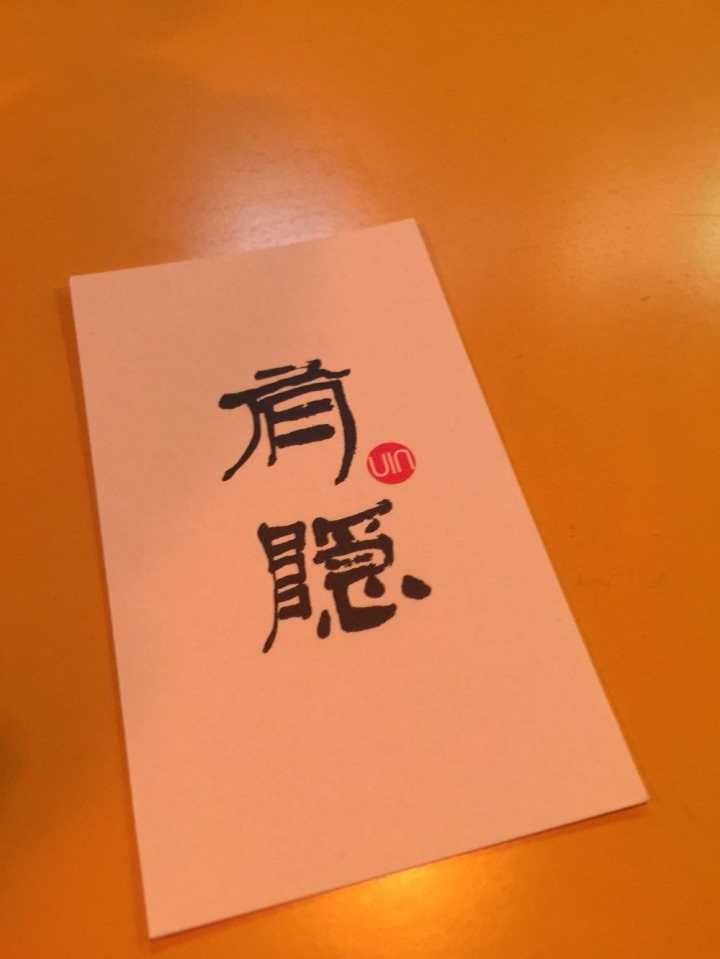 有
UIN
隱